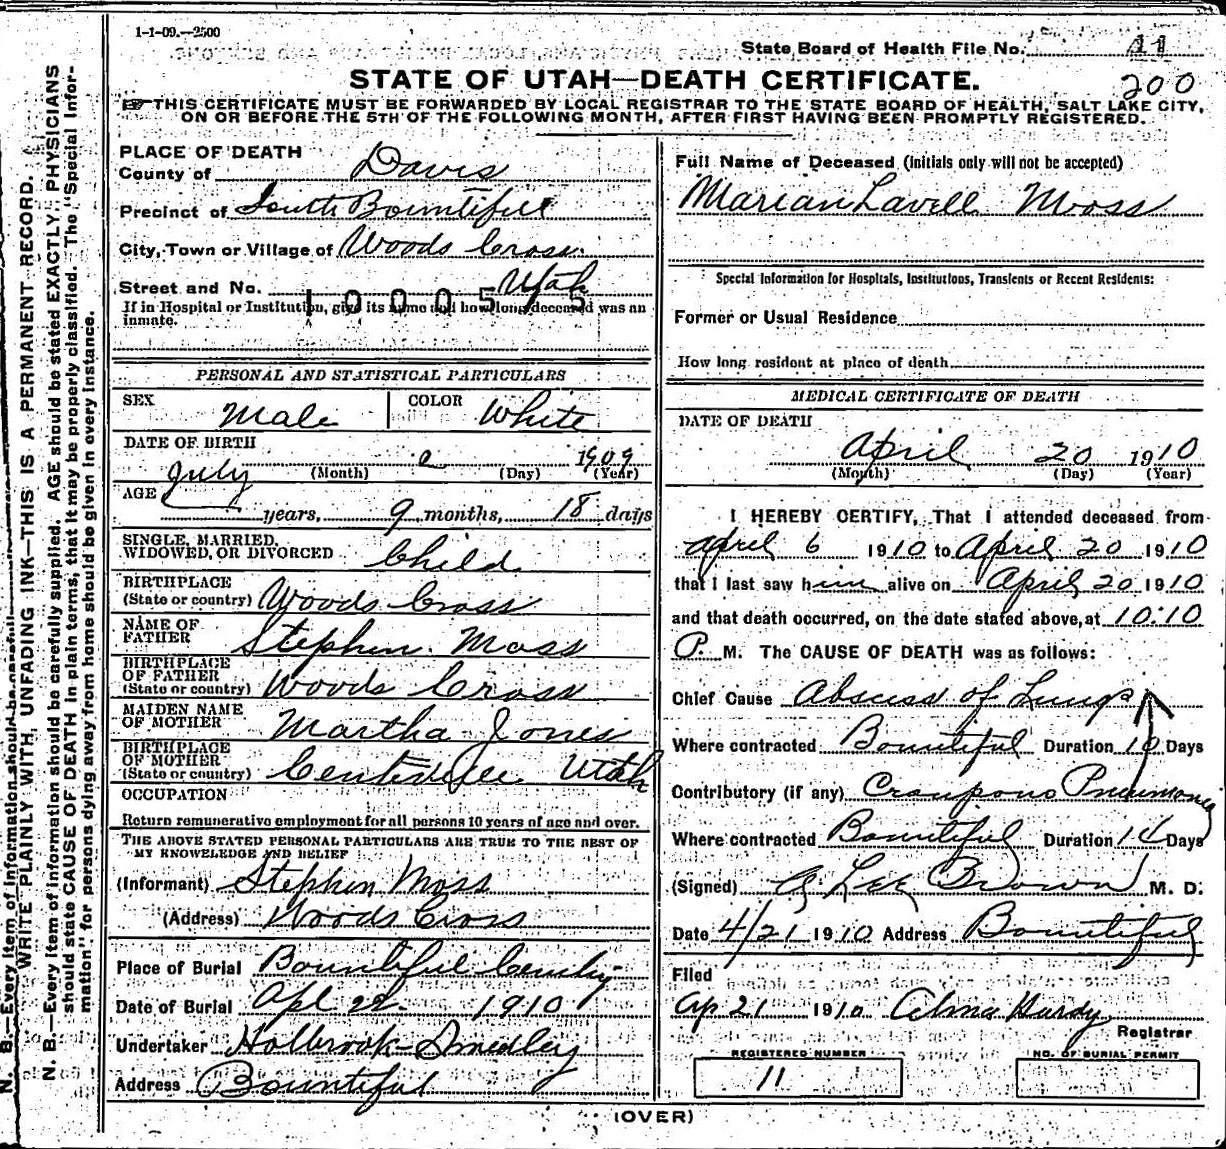 1-1-09.—2500
State Board of Health File No. 11
STATE OF UTAH—DEATH CERTIFICATE.
200
THIS CERTIFICATE MUST BE FORWARDED BY LOCAL REGISTRAR TO THE STATE BOARD OF HEALTH, SALT LAKE CITY,
ON OR BEFORE THE 5TH OF THE FOLLOWING MONTH, AFTER FIRST HAVING BEEN PROMPTLY REGISTERED.
N. B.—Every item of information should be carefully
WRITE PLAINLY WITH UNFADING INK—THIS IS A PERMANENT RECORD.
N. B.—Every item of information should be carefully supplied. AGE should be stated EXACTLY. PHYSICIANS
should state CAUSE OF DEATH in plain terms, that it may be properly classified. The "Special Infor-
mation" for persons dying away from home should be given in every instance.
PLACE OF DEATH
County of Davis
Precinct of South Bountiful
City, Town or Village of Woods Cross
Street and No. Utah
1 0 0 0 5 5
If in Hospital or Institution, give its name and how long deceased was an
inmate.
PERSONAL AND STATISTICAL PARTICULARS
SEX Male
COLOR White
DATE OF BIRTH
July 2 1909
(Month) (Day) (Year)
AGE
years, 9 months, 18 days
SINGLE, MARRIED,
WIDOWED, OR DIVORCED Child
BIRTHPLACE
(State or country) Woods Cross
NAME OF
FATHER Stephen Moss
BIRTHPLACE
OF FATHER
(State or country) Woods Cross
MAIDEN NAME
OF MOTHER Martha Jones
BIRTHPLACE
OF MOTHER
(State or country) Centerville Utah
OCCUPATION
Return remunerative employment for all persons 10 years of age and over.
THE ABOVE STATED PERSONAL PARTICULARS ARE TRUE TO THE BEST OF
MY KNOWELEDGE AND BELIEF
(Informant) Stephen Moss
(Address) Woods Cross
Place of Burial Bountiful
Date of Burial Apl 22 1910
Undertaker Holbrook-Smedley
Address Bountiful
Full Name of Deceased (Initials only will not be accepted)
Marian Lavell Moss
Special Information for Hospitals, Institutions, Transients or Recent Residents:
Former or Usual Residence
How long resident at place of death
MEDICAL CERTIFICATE OF DEATH
DATE OF DEATH
April 20 1910
(Month) (Day) (Year)
I HEREBY CERTIFY, That I attended deceased from
April 6 1910 to April 20 1910
that I last saw him alive on April 20 1910
and that death occurred, on the date stated above, at 10:10
P. M. The CAUSE OF DEATH was as follows:
Chief Cause Abscess of Lungs
Where contracted Bountiful Duration 10 Days
Contributory (if any) Croupous Pneumonia
Where contracted Bountiful Duration 14 Days
(Signed) A Lee Brown M. D.
Date 4/21 1910 Address Bountiful
Filed
Ap 21 1910 Alma Hardy
Registrar
REGISTERED NUMBER
11
NO. OF BURIAL PERMIT
(OVER)